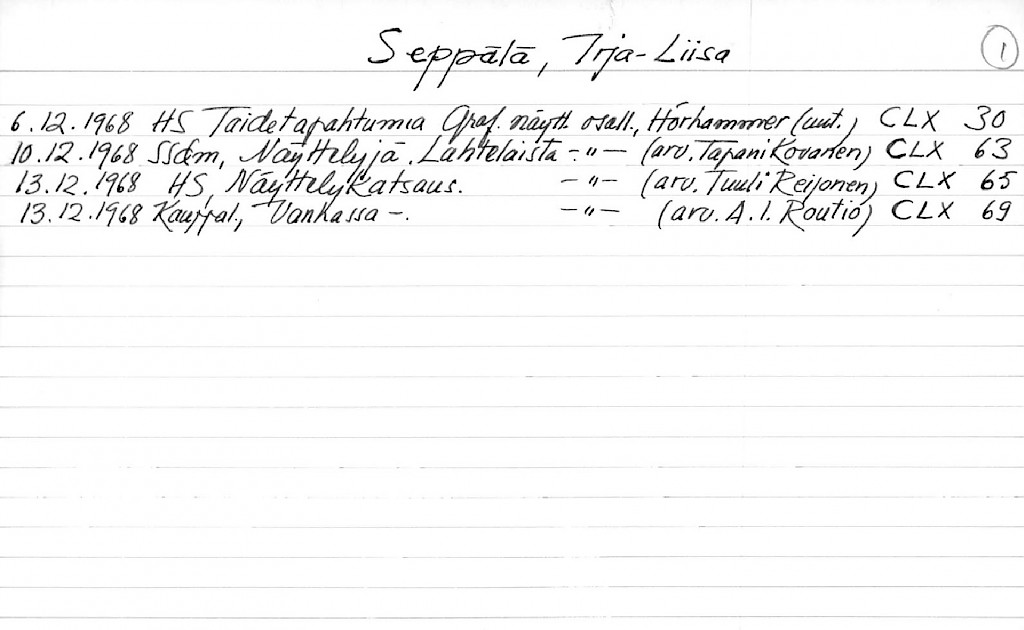 Seppälä, Irja-Liisa 1
6.12.1968 HS Taidetapahtumia Graf. näytt. osall., Hörhammer (uut.) CLX 30
10.12.1968 SSdm, Näyttelyjä. Lahtelaista -"- (arv. Tapani Kovanen) CLX 63
13.12.1968 HS, Näyttelykatsaus. -"- (arv. Tuuli Reijonen) CLX 65
13.12.1968 Kauppal., Vankassa -. -"- (arv. A. I. Routio) CLX 69